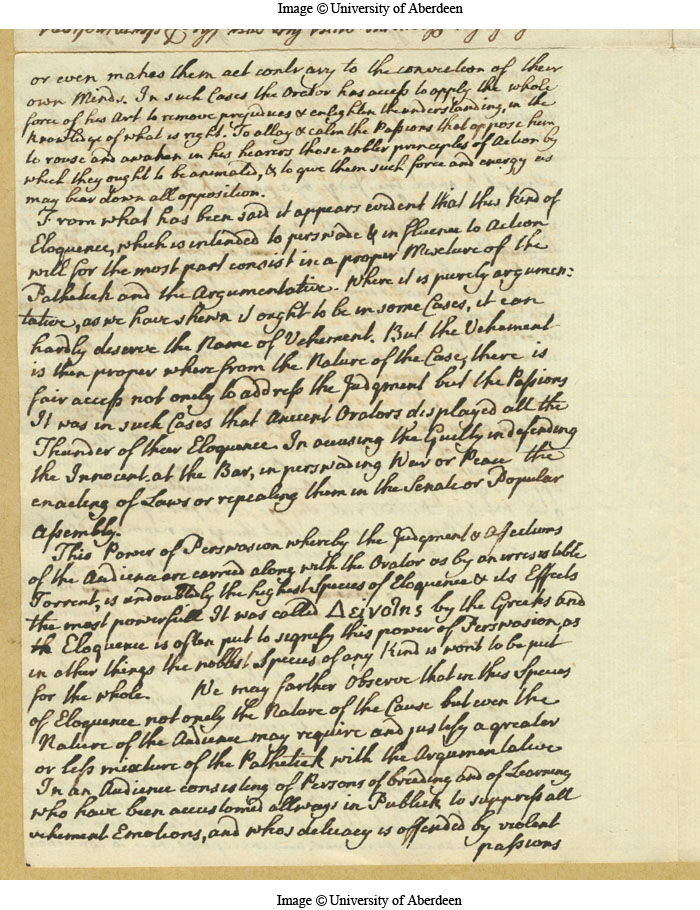 Image © University of Aberdeen
or even makes them act contrary to the conviction of their
own Minds. In such Cases the Orator has access to apply the whole
force of his Art to remove prejudices & enlighten the understanding, in the
knowledge of what is right. To allay & calm the Passions that oppose him
to rouse and awaken in his hearers those nobler principles of Action by
which they ought to be animated, & to give them such force and energy as
may bear down all opposition.
From what has been said it appears evident that this kind of
Eloquence, which is intended to perswade & influence to Action
will for the most part consist in a proper Mixture of the
Pathetick and the Argumentative. Where it is purely argumen:
tative, as we have shewn it ought to be in some Cases, it can
hardly deserve the Name of Vehement. But the Vehement
is then proper where from the Nature of the Case, there is
fair access not onely to address the Judgment but the Passions
It was in such Cases that Ancient Orators displayed all the
Thunder of their Eloquence. In accusing the Guilty in defending
the Innocent. at the Bar, in perswading War or Peace the
enacting of Laws or repealing them in the Senate or Popular
Assembly.
This Power of Perswasion whereby the Judgment & Affections
of the Audience are carried along with the Orator as by an irresistible
Torrent, is undoubtedly the highest Species of Eloquence & its Effects
the most powerfull. It was called Δεινοτης by the Greeks and
the Eloquence is often put to signify this power of Perswasion, as
in other things the noblest Species of any Kind is wont to be put
for the whole. We may farther Observe that in this Species
of Eloquence not onely the Nature of the Cause but even the
Nature of the Audience may require and justify a greater
or less mixture of the Pathetick with the Argumentative
In an Audience consisting of Persons of breeding and of Learning
who have been accustomed allways in Publick to suppress all
vehement Emotions, and whos delicacy is offended by violent
passions
Image © University of Aberdeen